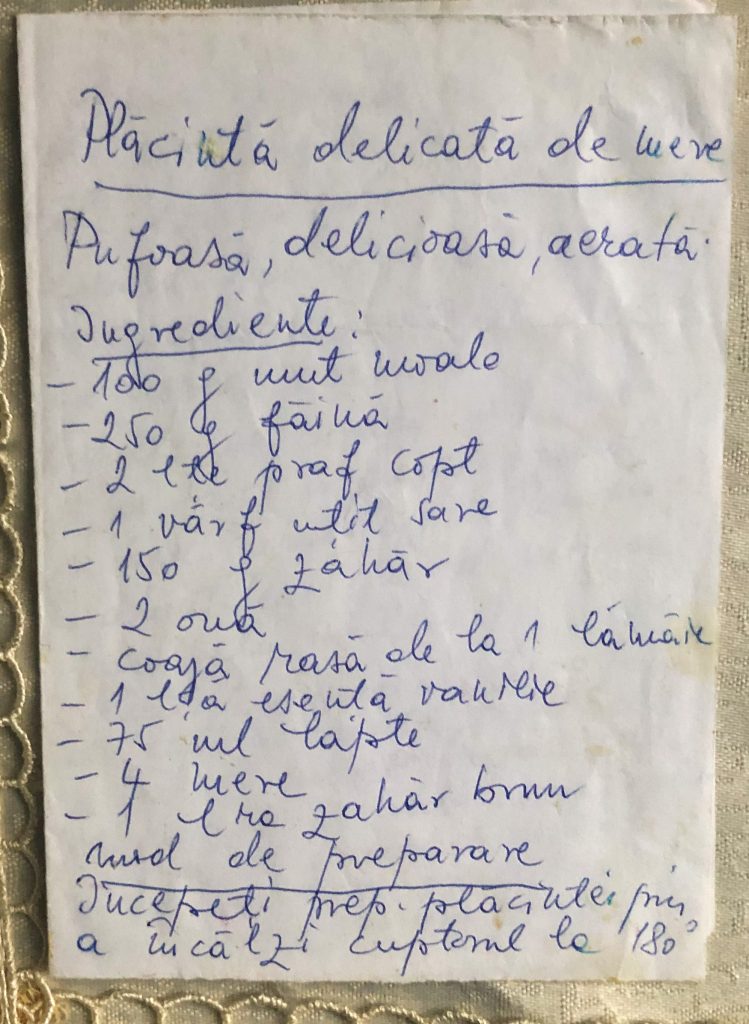 Plăcintă delicată de mere
Pufoasă, delicioasă, aerată.
Ingrediente:
- 100 g unt moale
- 250 g făină
- 2 lțe praf copt
- 1 vârf cuțit sare
- 150 g zahăr
- 2 ouă
- coajă rasă de la 1 lămâie
- 1 lța esență vanilie
- 75 ml lapte
- 4 mere
- 1 lra zahăr brun
mod de preparare
Începeți prep. plăcintei prin
a încălzi cuptorul la 180°